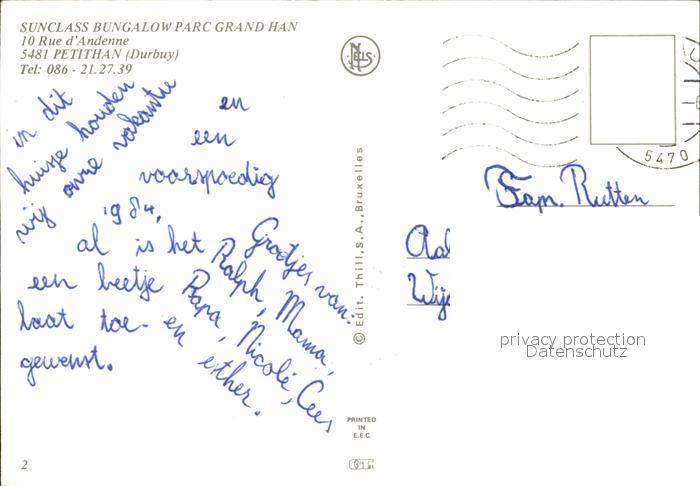 SUNCLASS BUNGALOW PARC GRAND HAN
10 Rue d'Andenne
5481 PETITHAN (Durbuy)
Tel: 086 - 21.27.39
in dit
huisje houden
wij onze vakantie
en
een
voorspoedig
1984,
al is het
een beetje
laat toe-
gewenst.
Groetjes van:
Ralph, Mama,
Papa, Nicolé, Cees
en esther.
NELS
© Edit. Thill, S.A., Bruxelles
PRINTED
IN
E.E.C.
2
5470
Fam. Rutten
privacy protection
Datenschutz